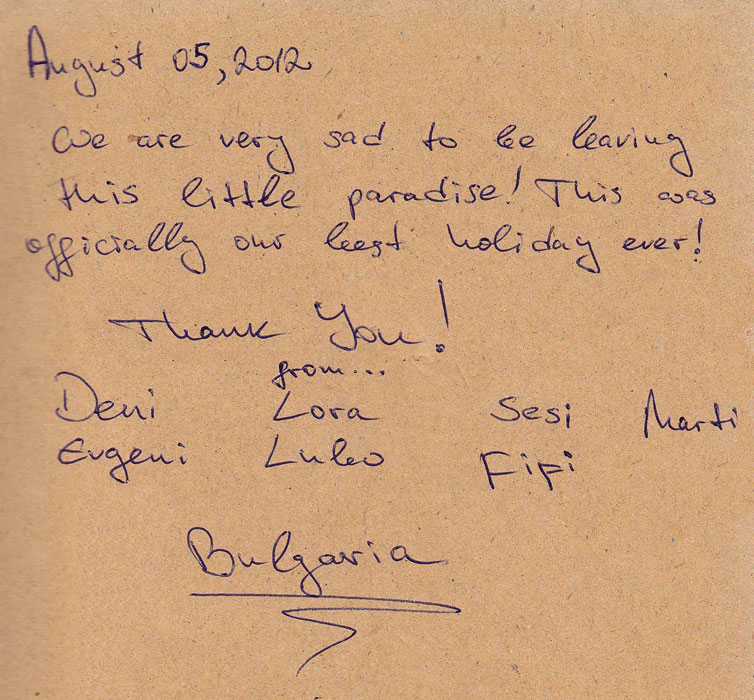 August 05, 2012
We are very sad to be leaving
this little paradise! This was
officially our best holiday ever!
Thank You!
from...
Deni Lora Sesi Marti
Evgeni Lubo Fifi
Bulgaria